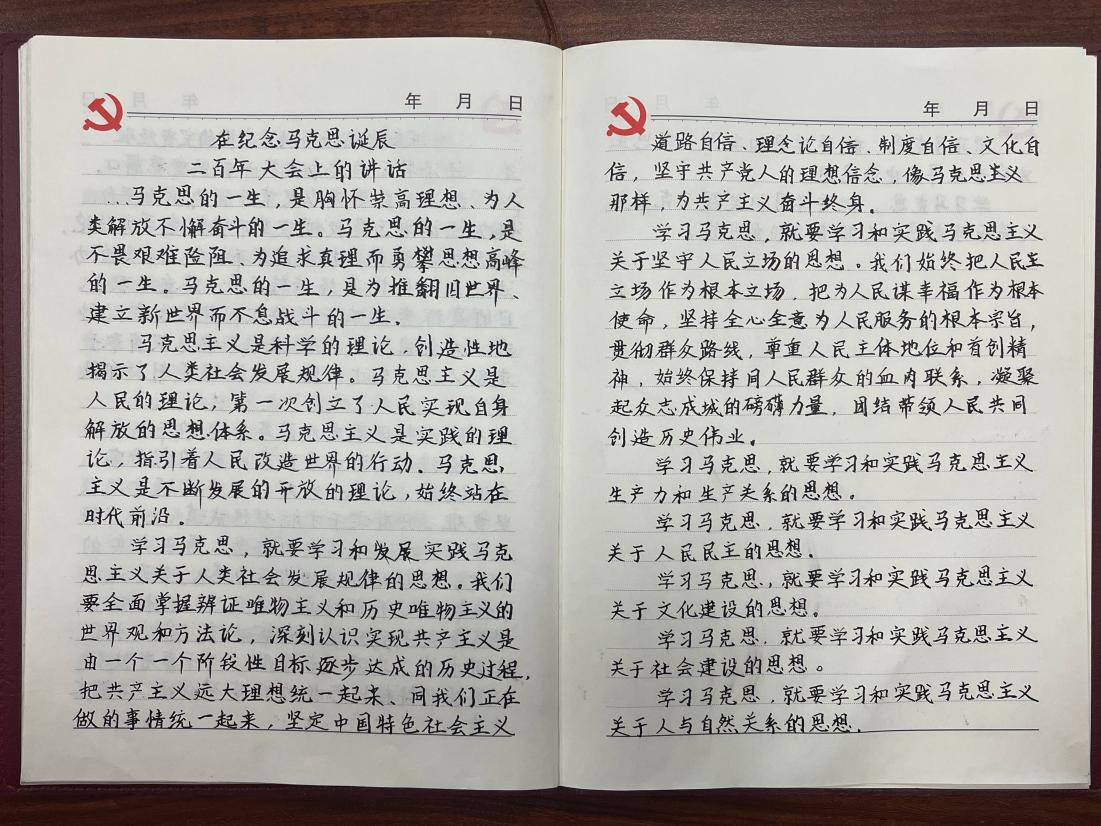 年 月 日
在纪念马克思诞辰
二百年大会上的讲话
马克思的一生，是胸怀崇高理想、为人
类解放不懈奋斗的一生。马克思的一生，是
不畏艰难险阻、为追求真理而勇攀思想高峰
的一生。马克思的一生，是为推翻旧世界、
建立新世界而不息战斗的一生.
马克思主义是科学的理论，创造性地
揭示了人类社会发展规律。马克思主义是
人民的理论，第一次创立了人民实现自身
解放的思想体系。马克思主义是实践的理
论，指引着人民改造世界的行动。马克思
主义是不断发展的开放的理论，始终站在
时代前沿。
学习马克思，就要学习和发展实践马克
思主义关于人类社会发展规律的思想。我们
要全面掌握辨证唯物主义和历史唯物主义的
世界观和方法论，深刻认识实现共产主义是
由一个一个阶段性目标逐步达成的历史过程，
把共产主义远大理想统一起来、同我们正在
做的事情统一起来，坚定中国特色社会主义
年 月 日
道路自信、理念论自信、制度自信、文化自
信，坚守共产党人的理想信念，像马克思主义
那样，为共产主义奋斗终身。
学习马克思，就要学习和实践马克思主义
关于坚守人民立场的思想。我们始终把人民主
立场作为根本立场，把为人民谋幸福作为根本
使命，坚持全心全意为人民服务的根本宗旨，
贯彻群众路线，尊重人民主体地位和首创精
神，始终保持同人民群众的血肉联系，凝聚
起众志成城的磅礴力量，团结带领人民共同
创造历史伟业。
学习马克思，就要学习和实践马克思主义
生产力和生产关系的思想。
学习马克思，就要学习和实践马克思主义
关于人民民主的思想.
学习马克思，就要学习和实践马克思主义
关于文化建设的思想。
学习马克思，就要学习和实践马克思主义
关于社会建设的思想。
学习马克思，就要学习和实践马克思主义
关于人与自然关系的思想.